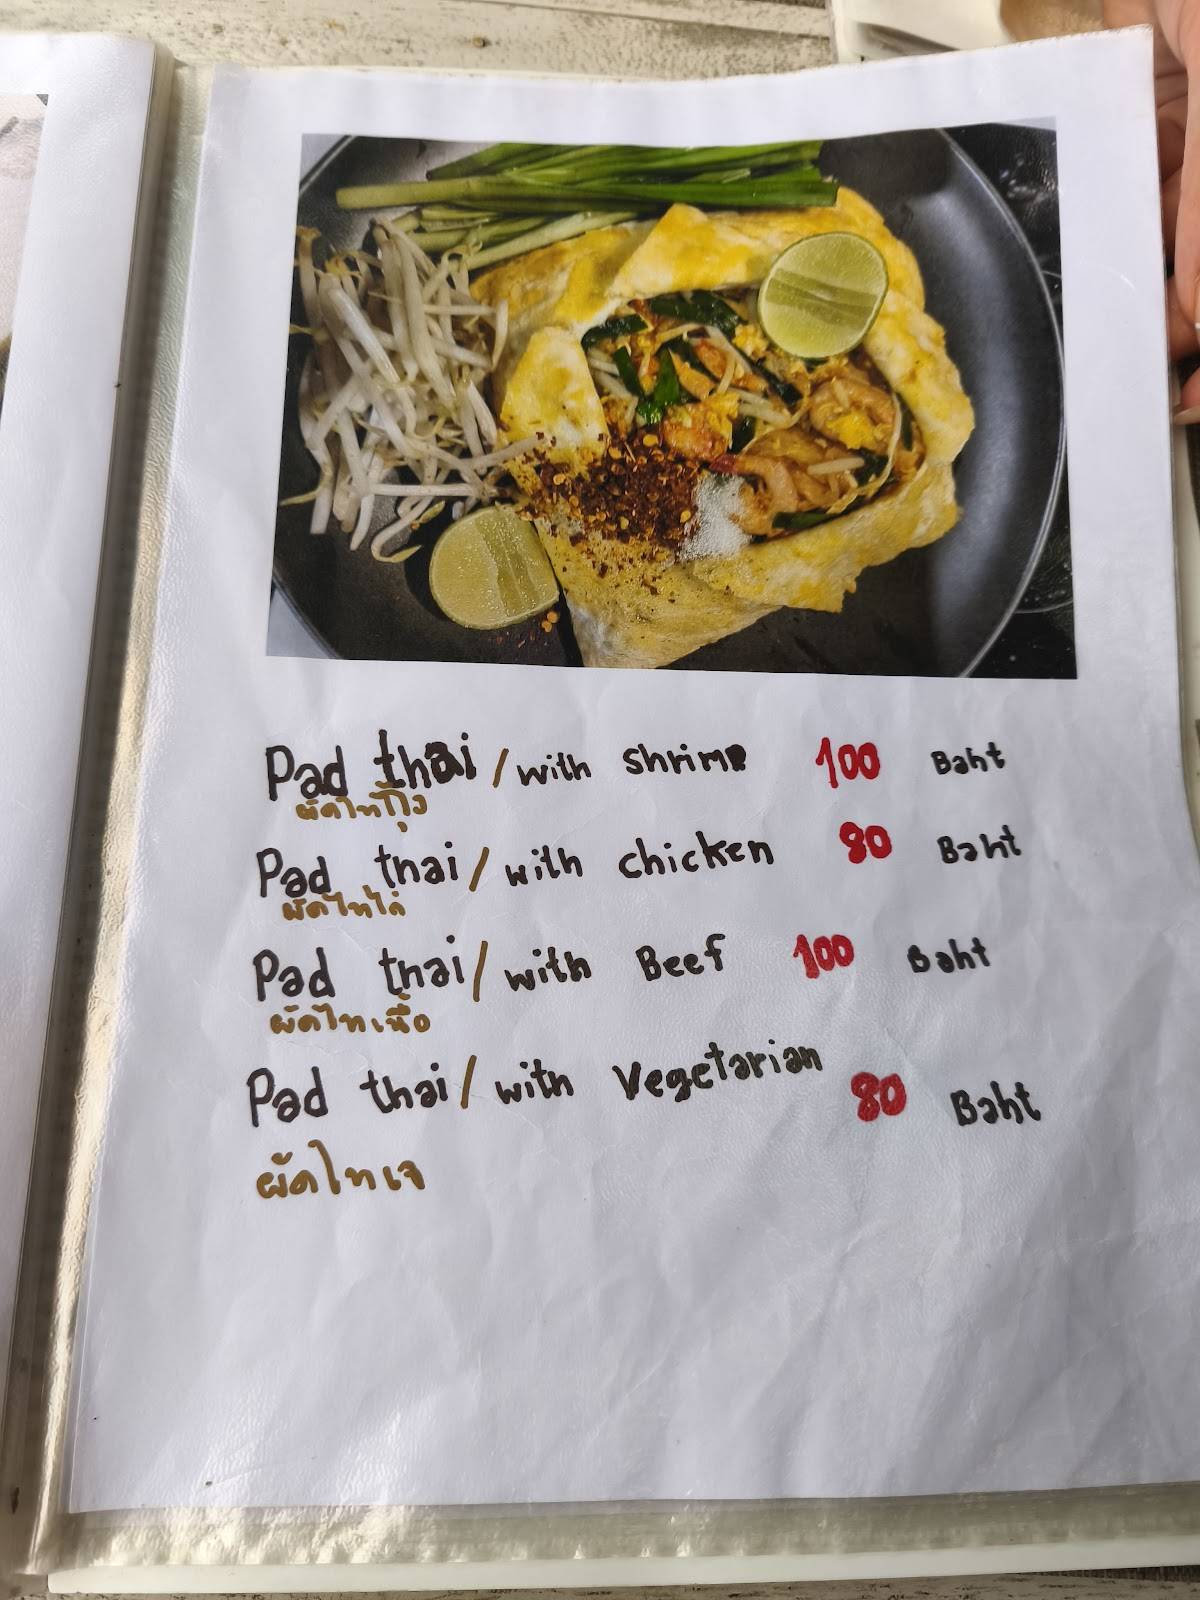 Pad thai / with shrimp 100 Baht
ผัดไทกุ้ง
Pad thai / with chicken 80 Baht
ผัดไทไก่
Pad thai / with Beef 100 Baht
ผัดไทเนื้อ
Pad thai / with Vegetarian 80 Baht
ผัดไทเจ